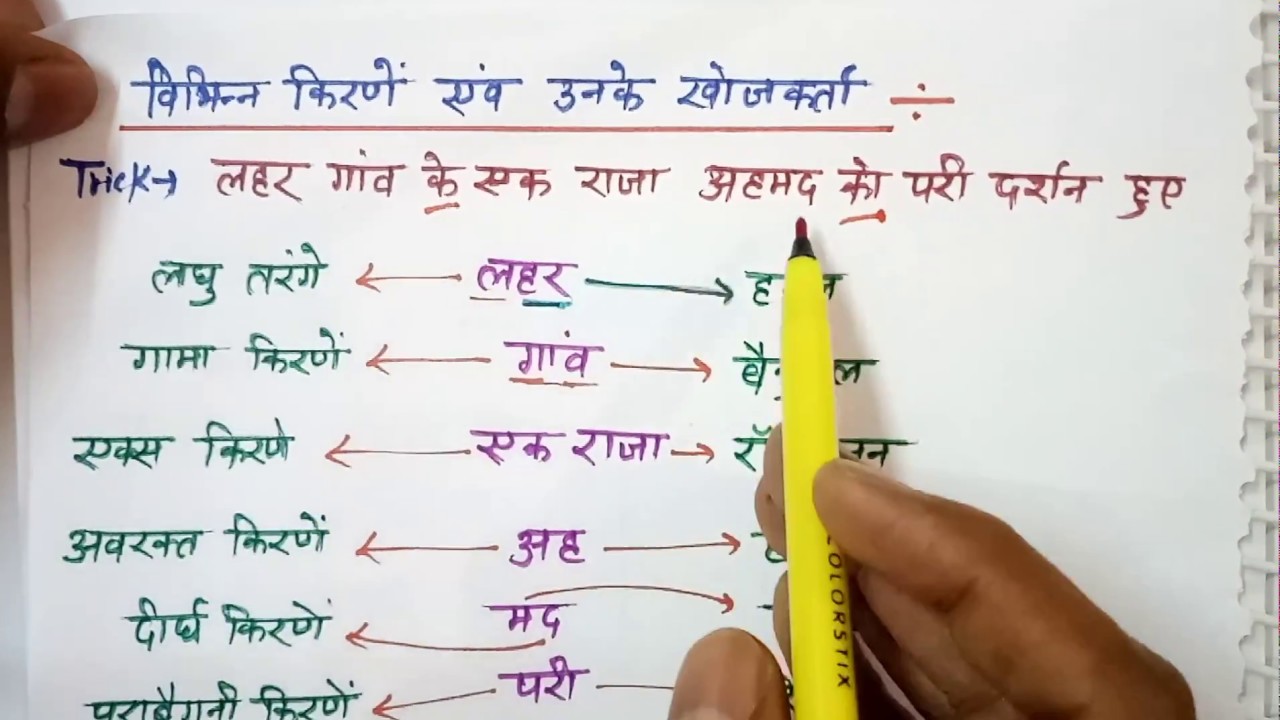 विभिन्न किरणें एंव उनके खोजकर्ता ÷
Trick→ लहर गांव के एक राजा अहमद को परी दर्शन हुए
लघु तरंगे ← लहर →
गामा किरणें ← गांव →
एक्स किरणे ← एक राजा →
अवरक्त किरणें ← अह →
दीर्घ किरणें ← मद →
पराबैगनी किरणें ← परी
COLORSTIX